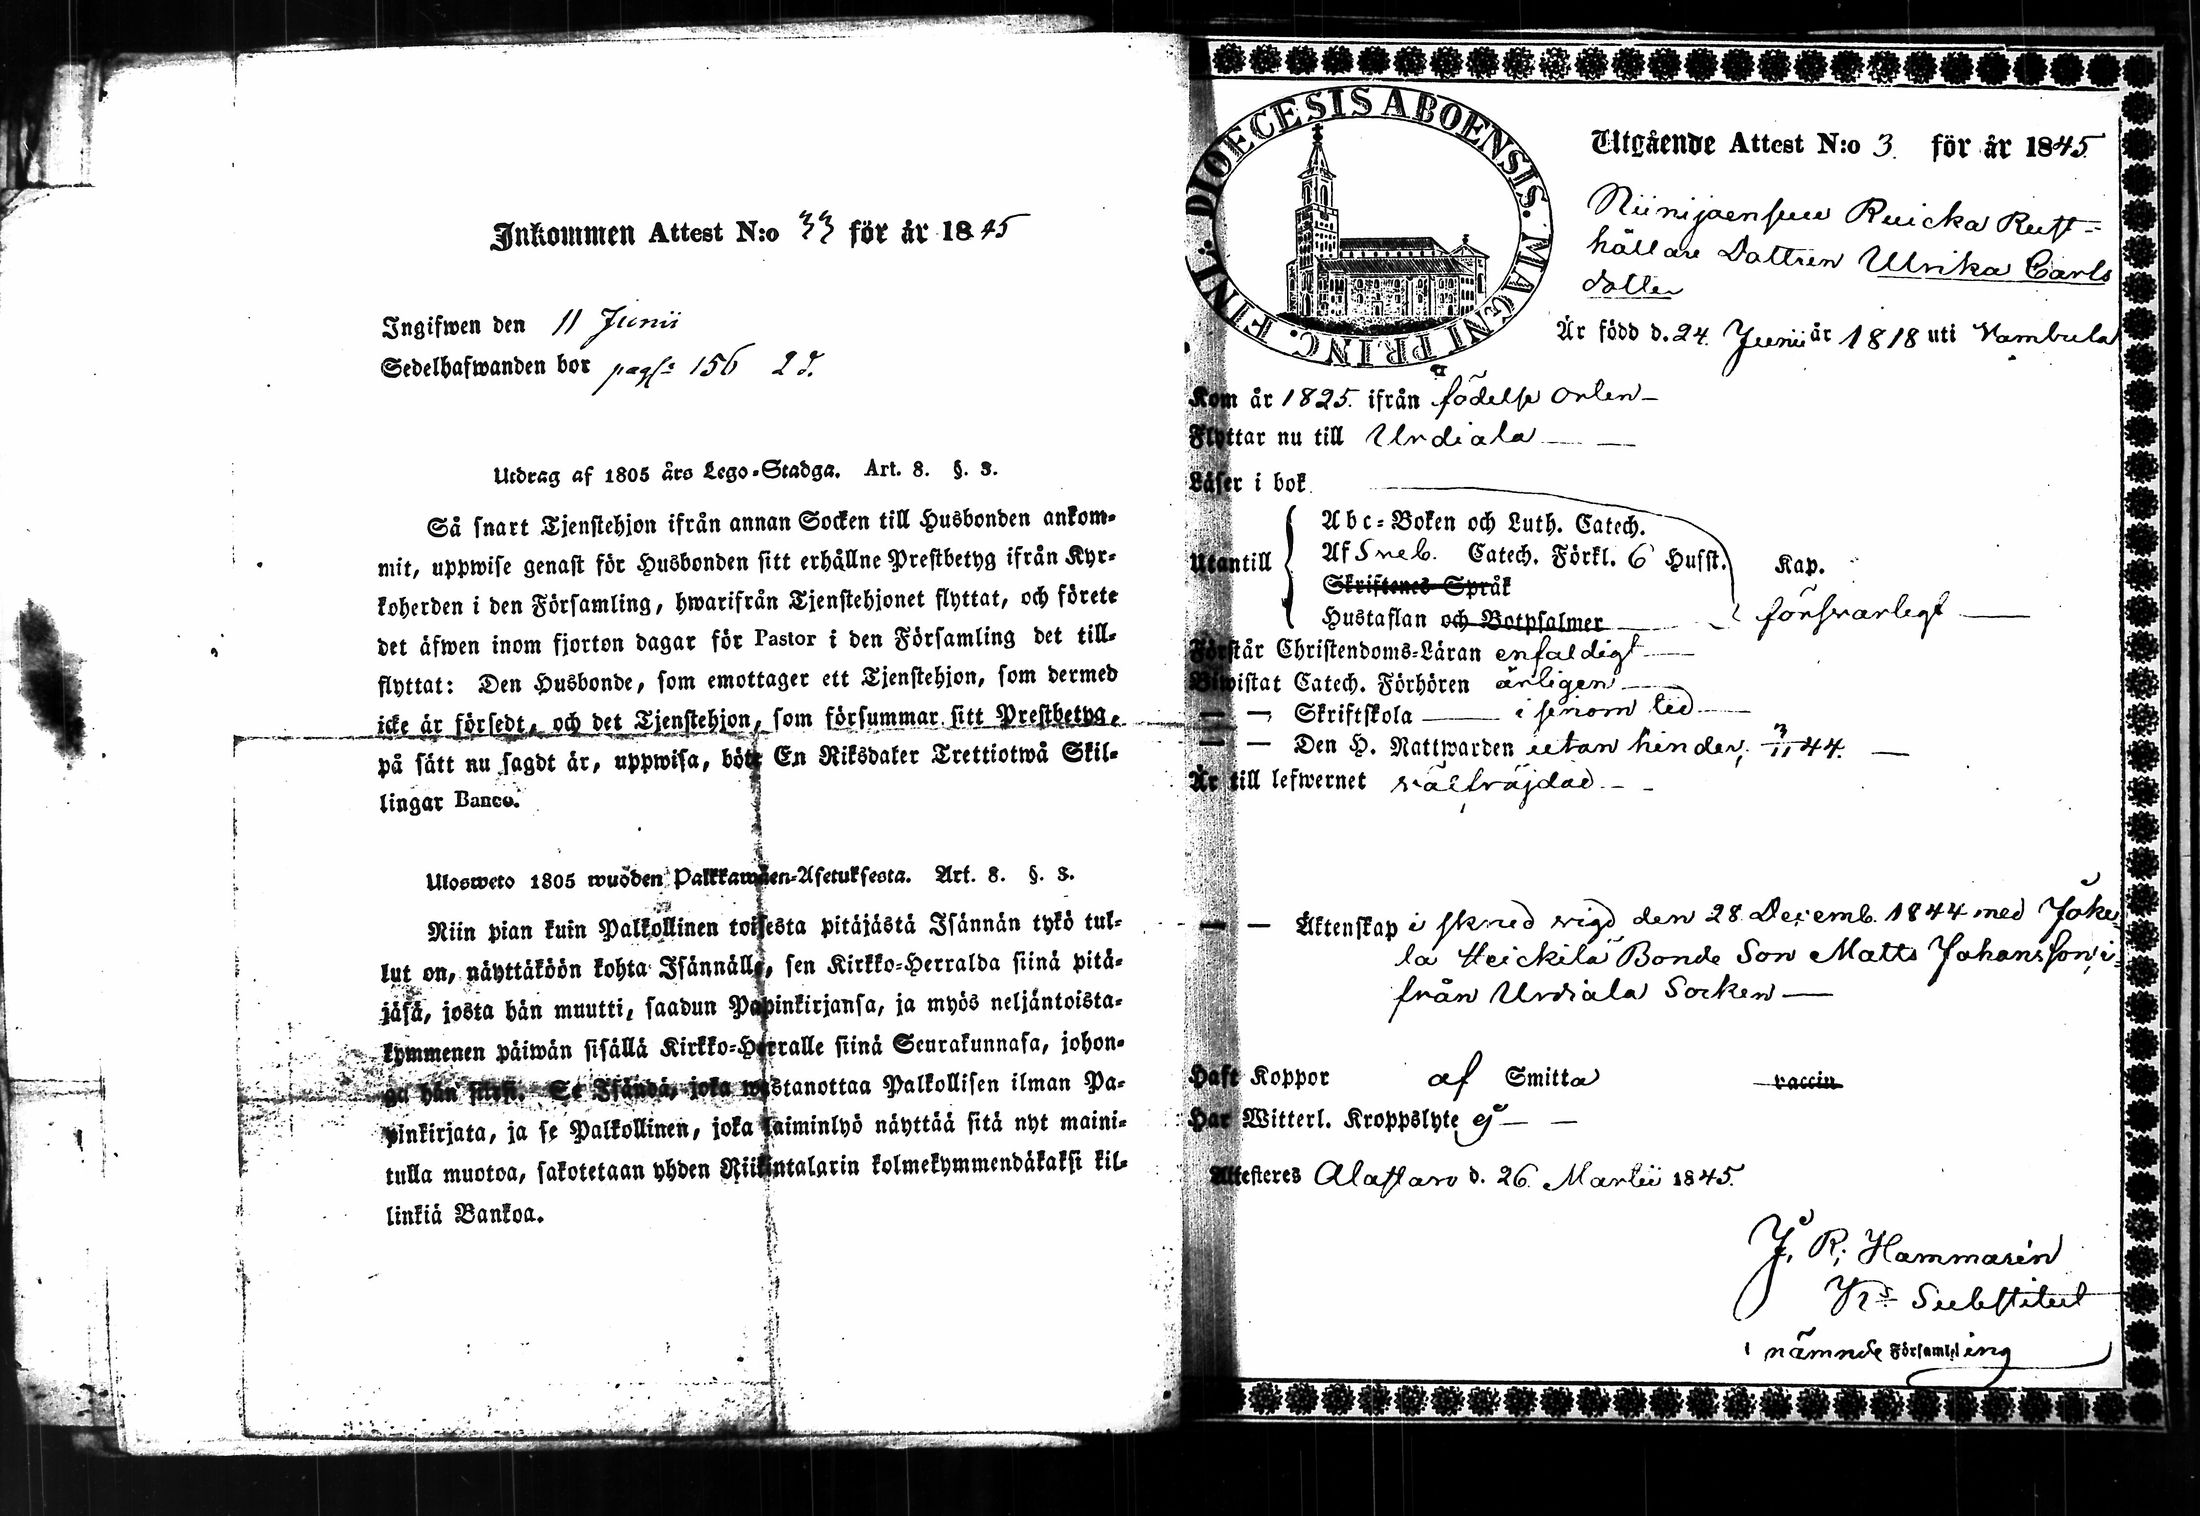 Inkommen Attest N:o 33 för år 1845
Ingifwen den 11 Junii
Sedelhafwanden bor pag: 156 2 d.
Utdrag af 1805 års Lego-Stadga. Art. 8. §. 3.
Så snart Tjenstehjon ifrån annan Socken till Husbonden ankom-
mit, uppwise genast för Husbonden sitt erhållne Prestbetyg ifrån Kyr-
koherden i den Församling, hwarifrån Tjenstehjonet flyttat, och förete
det äfwen inom fjorton dagar för Pastor i den Församling det till-
flyttat: Den Husbonde, som emottager ett Tjenstehjon, som dermed
icke är försedt, och det Tjenstehjon, som försummar sitt Prestbetyg,
på sätt nu sagdt är, uppwisa, böte En Riksdaler Trettiotwå Skil-
lingar Banco.
Ulosweto 1805 wuoden Palkkawäen-Asetuksesta. Art. 8. §. 3.
Niin pian kuin Palkollinen toisesta pitäjästä Isännän tykö tul-
lut on, näyttäköön kohta Isännälle, sen Kirkko-Herralda siinä pitä-
jäsä, josta hän muutti, saadun Papinkirjansa, ja myös neljäntoista-
kymmenen päiwän sisällä Kirkko-Herralle siinä Seurakunnasa, johon-
ga hän siirsi. Se Isändä, joka wastanottaa Palkollisen ilman Pa-
pinkirjata, ja se Palkollinen, joka laiminlyö näyttää sitä nyt maini-
tulla muotoa, sakotetaan yhden Riikintalarin kolmekymmendäkaksi kil-
linkiä Bankoa.
DIOECESIS ABOENSIS. MAGNI PRINC. FINL.
Utgående Attest N:o 3. för år 1845.
Niinijoensuu Ruicka Rust-
hållare Dottren Ulrika Carls
dotter
Är född d. 24 Junii år 1818 uti Vambula
Kom år 1825. ifrån födelse orten
Flyttar nu till Urdiala
Läser i bok
Abc-Boken och Luth. Catech.
Utantill Af Sveb. Catech. Förkl. 6 Husst. Kap.
Skriftenes Språk
Hustaflan och Botpsalmer försvarligt
Förstår Christendoms-Läran enfaldigt
Biwistat Catech. Förhören årligen
— — Skriftskola i sinom tid
— — Den H. Nattwarden utan hinder, 3/11 44.
Är till lefwernet välfräjdad
— — Äktenskap i skred vigd den 28 Decemb. 1844 med Jåke-
la Heickilä Bonde Son Matts Johansson, i-
från Urdiala Socken
Haft Koppor af Smitta vaccin
Har Witterl. Kroppslyte ej
Attesteres Alastaro d. 26 Martii 1845.
J. R. Hammarén
V. Ps Substitut
i nämnde Församling